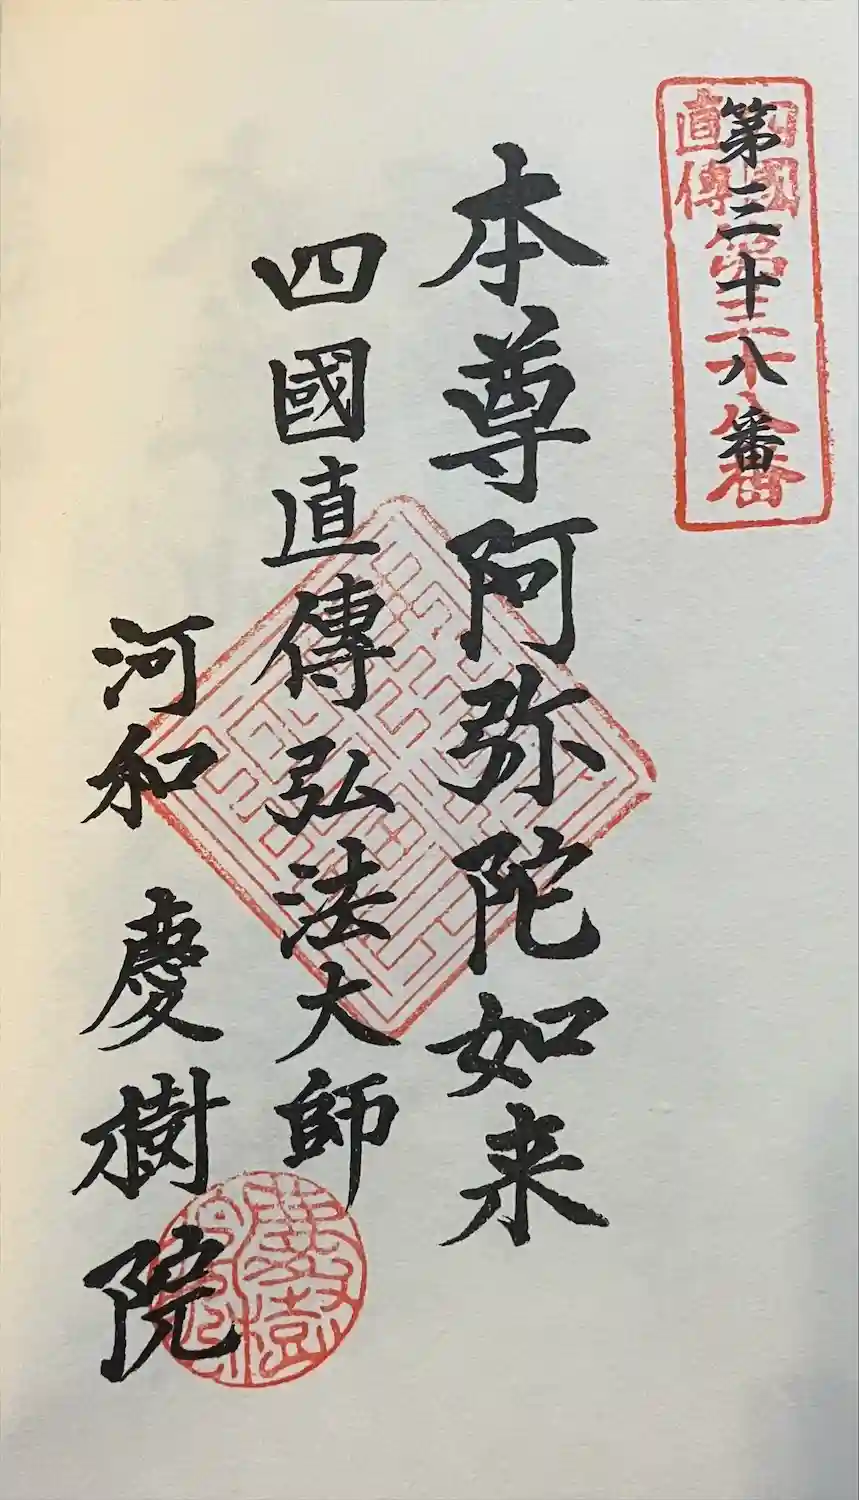 四國
直傳
第三十八番
第三十八番
本尊阿弥陀如来
四國直傳弘法大師
河和 慶樹院